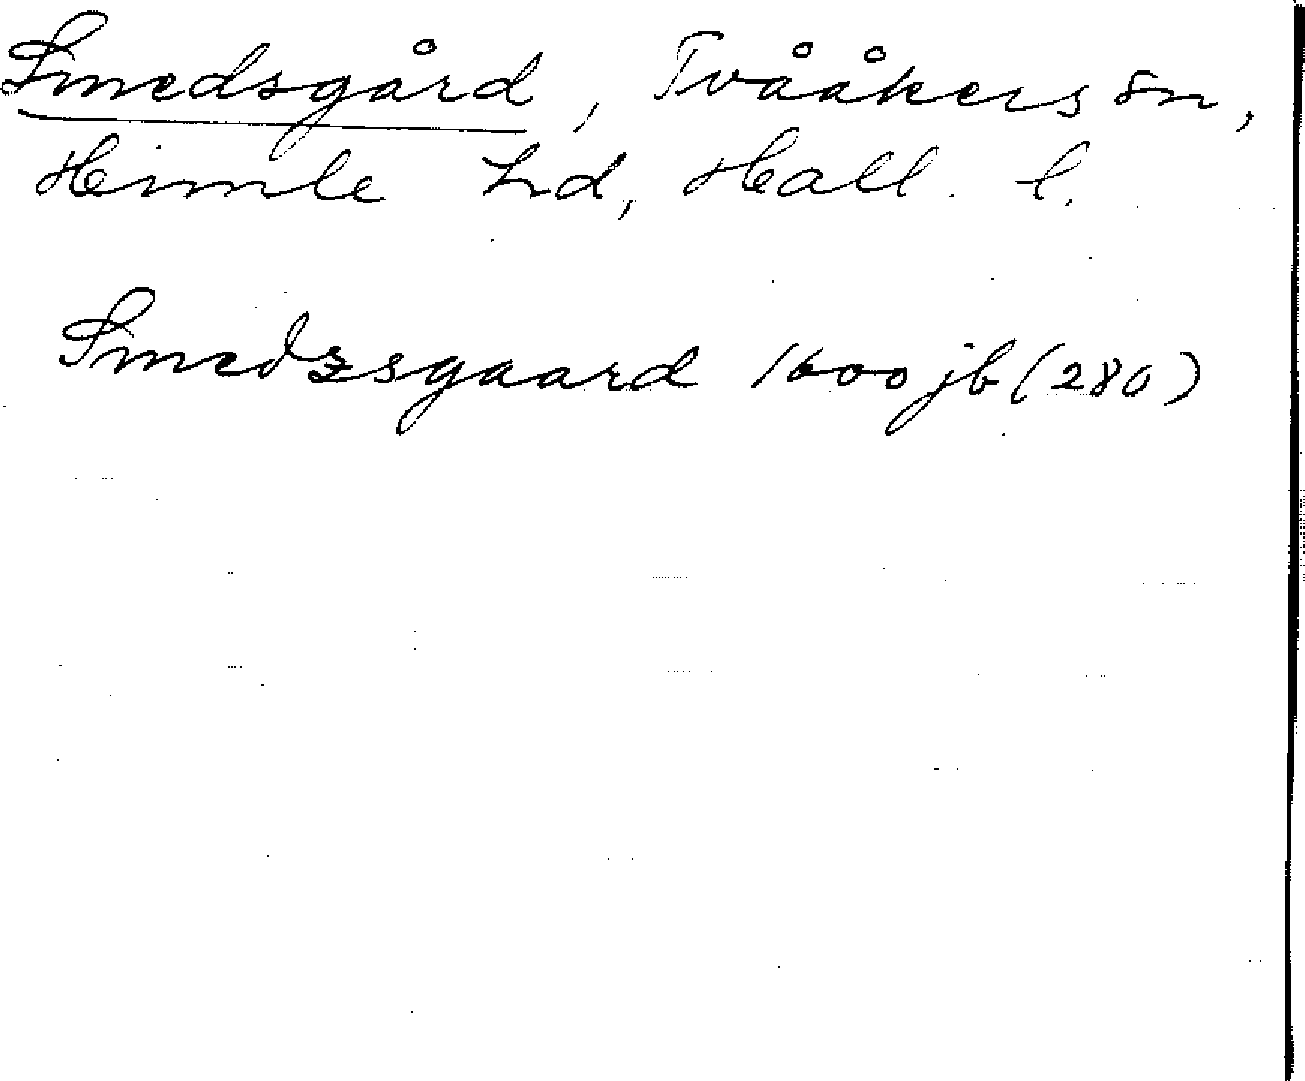 Smedsgård, Tvååkers sn,
Himle hd, Hall. l.
Smedzsgaard 1600 jb (280)